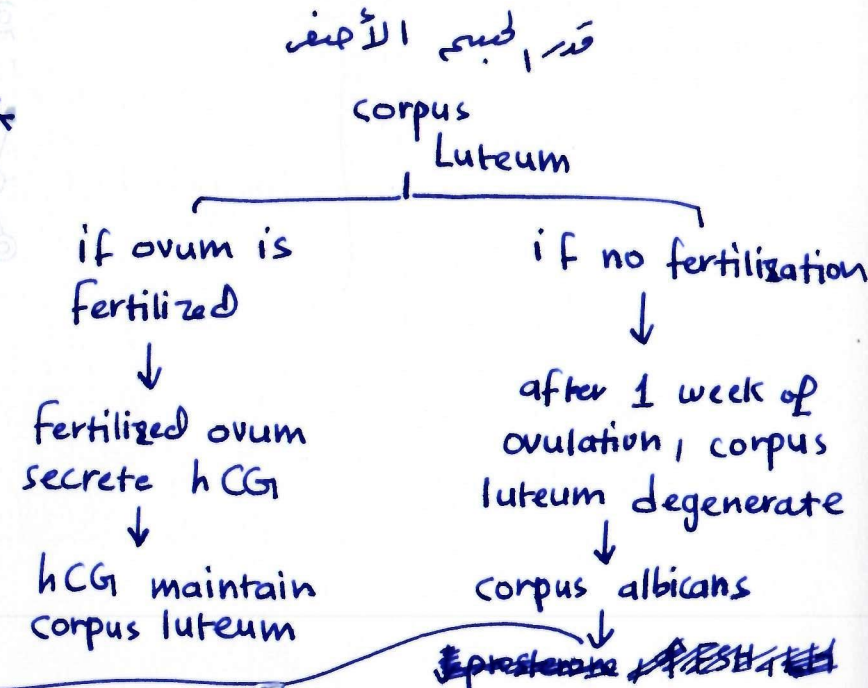 قدر الجسم الأصفر
corpus
Luteum
if ovum is
fertilized
↓
fertilized ovum
secrete hCG
↓
hCG maintain
corpus luteum
if no fertilization
↓
after 1 week of
ovulation, corpus
luteum degenerate
↓
corpus albicans
↓